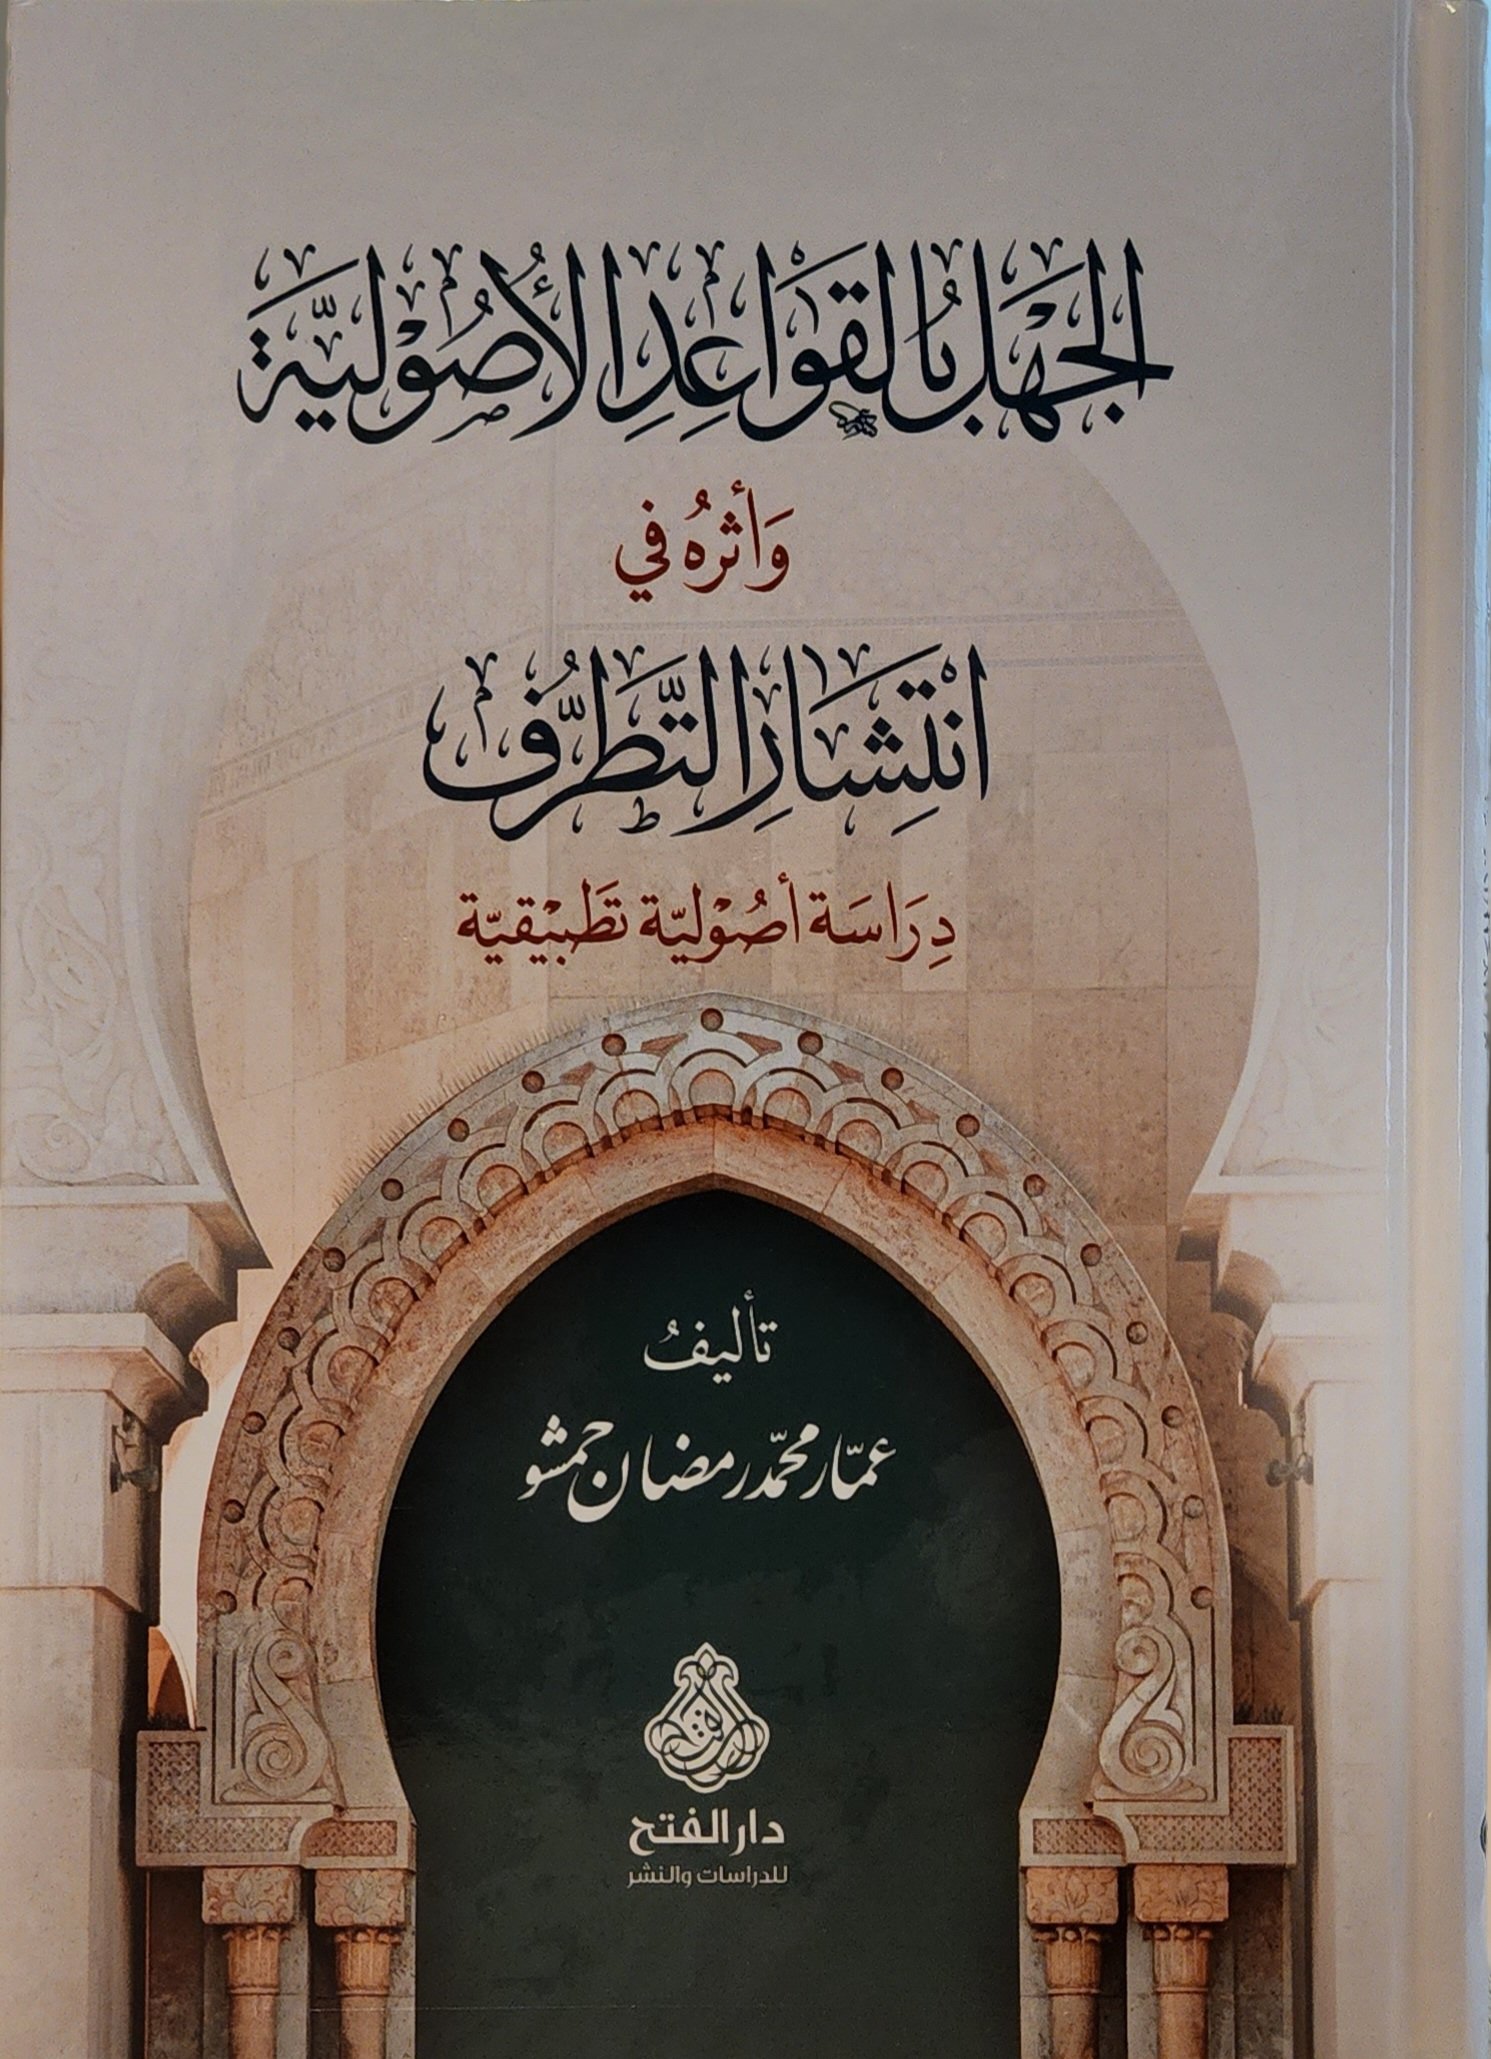 الجَهْلُ بِالقَوَاعِدِ الأُصُوْلِيَّةِ
وَأثرهُ في
انْتِشَارِ التَّطَرُّفِ
دِرَاسَة أصُوْليّة تَطبيْقيّة
تأليفُ
عمّار محمّد رمضان جمشو
دار الفتح
للدراسات والنشر